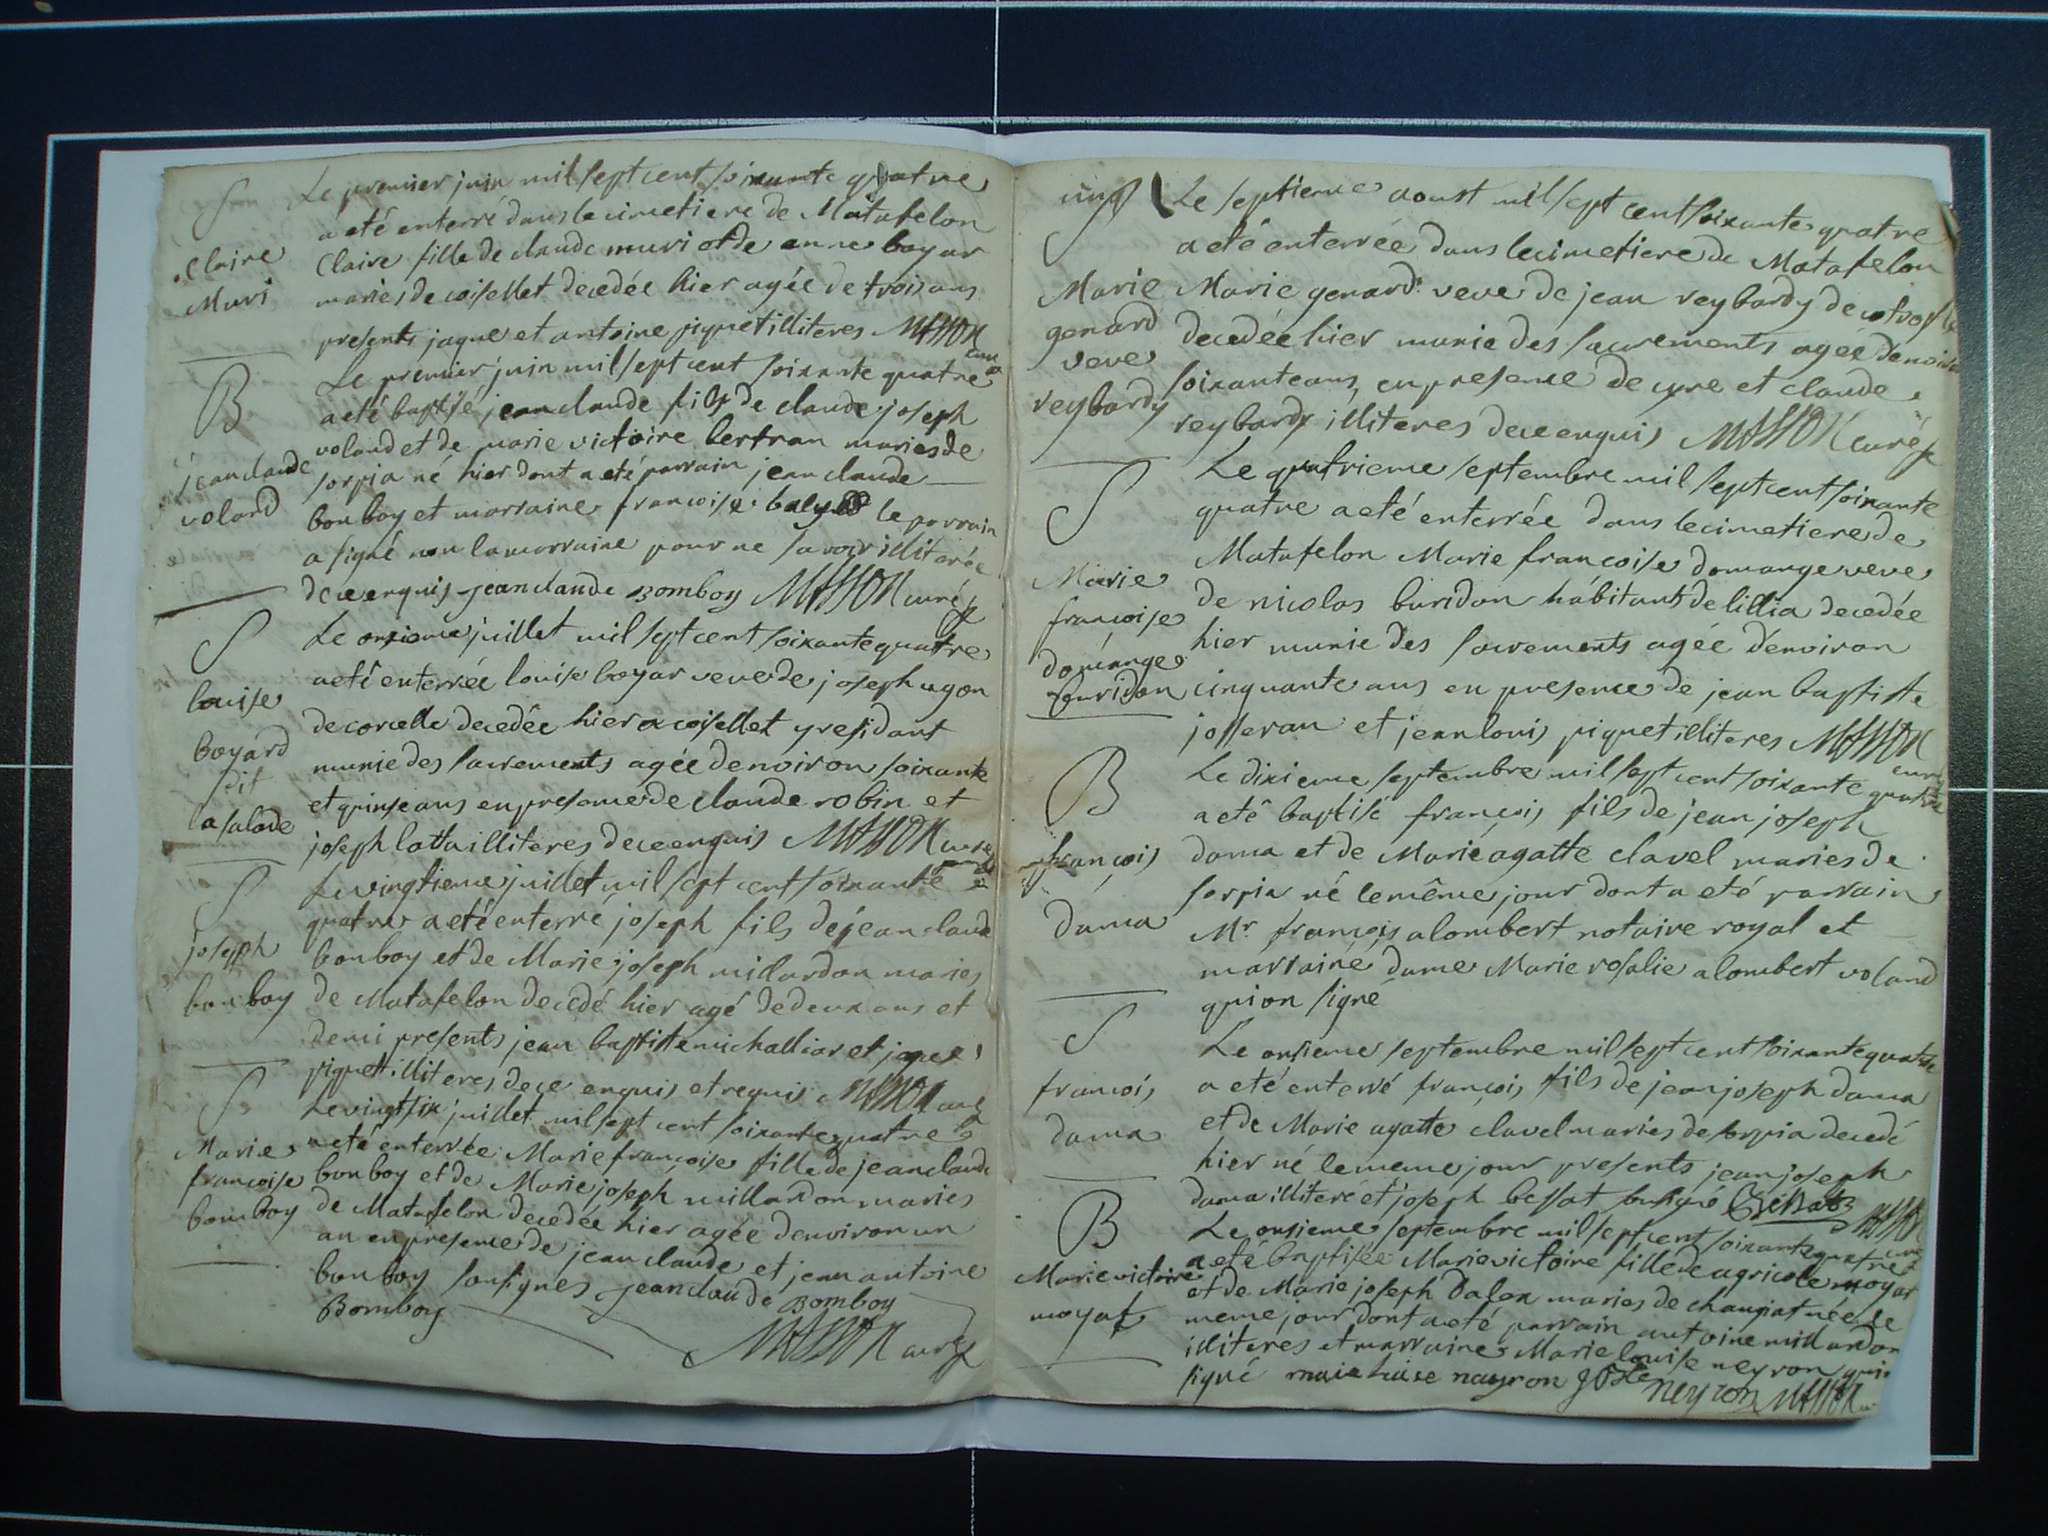 S
Claire
Muri
Le premier juin mil sept cent soixante quatre
a eté enterré dans le cimetiere de Matafelon
Claire fille de claude muri et de anne boyar
mariés de coisellet decedée hier agée de trois ans
presents jaque et antoine piquet illiteres MASSON
curé
B
jean claude
voland
Le premier juin mil sept cent soixante quatre
a eté baptisé jean claude fils de claude joseph
voland et de marie victoire bertran mariés de
sorpia né hier dont a eté parrain jean claude
bonboy et marraine françoise le parrain
a signé non la marraine pour ne savoir illiterée
de ce enquis jean claude Bomboy MASSON curé
S
louise
boyard
dit
lasalade
Le onzieme juillet mil sept cent soixante quatre
a eté enterrée louise boyar veve de joseph ugon
de corcelle decedée hier a coisellet y residant
munie des sacrements agée denviron soixante
et quinse ans en presence de claude robin et
joseph latta illiteres de ce enquis MASSON curé
S
joseph
bonboy
Le vingtieme juillet mil sept cent soixante
quatre a eté enterré joseph fils de jean claude
bonboy et de Marie joseph millardon mariés
de Matafelon decedé hier agé de deux ans et
demi presents jean baptiste michalliar et jaque
piquet illiteres de ce enquis et requis MASSON curé
S
Marie
françoise
bonboy
Le vingt six juillet mil sept cent soixante quatre
a eté enterrée Marie françoise fille de jean claude
bonboy et de Marie joseph millardon mariés
de Matafelon decedée hier agée denviron un
an en presence de jean claude et jean antoine
bonboy sousignes jean claude Bomboy
Bomboy
MASSON curé
S
Marie
genard
veve
reybardy
Le septieme aoust mil sept cent soixante quatre
a eté enterrée dans le cimetiere de Matafelon
Marie genard veve de jean reybardy de
decedée hier munie des sacrements agée denviron
soixante ans en presence de cyre et claude
reybardy illiteres de ce enquis MASSON curé
S
Marie
françoise
domange
buridon
Le quatrieme septembre mil sept cent soixante
quatre a eté enterrée dans le cimetiere de
Matafelon Marie françoise domange veve
de nicolas buridon habitant de lillia decedée
hier munie des sacrements agée denviron
cinquante ans en presence de jean baptiste
josseran et jean louis piquet illiteres MASSON
curé
B
françois
dama
Le dixieme septembre mil sept cent soixante quatre
a eté baptisé françois fils de jean joseph
dama et de Marie agatte clavel mariés de
sorpia né le même jour dont a eté parrain
Mr françois alombert notaire royal et
marraine dame Marie rosalie alombert voland
qui on signé
S
françois
dama
Le onsieme septembre mil sept cent soixante quatre
a eté enterré françois fils de jean joseph dama
et de Marie agatte clavel mariés de sorpia decedé
hier né le meme jour presents jean joseph
dama illiteré et joseph bessat MASSON
curé
B
Marie victoire
moyat
Le onsieme septembre mil sept cent soixante quatre
a eté baptisée Marie victoire fille de agricole moyat
et de Marie joseph dalex mariés de changiat née le
meme jour dont a eté parrain antoine millardon
illiteres et marraine Marie louise neyron qui a
signé neyron MASSON